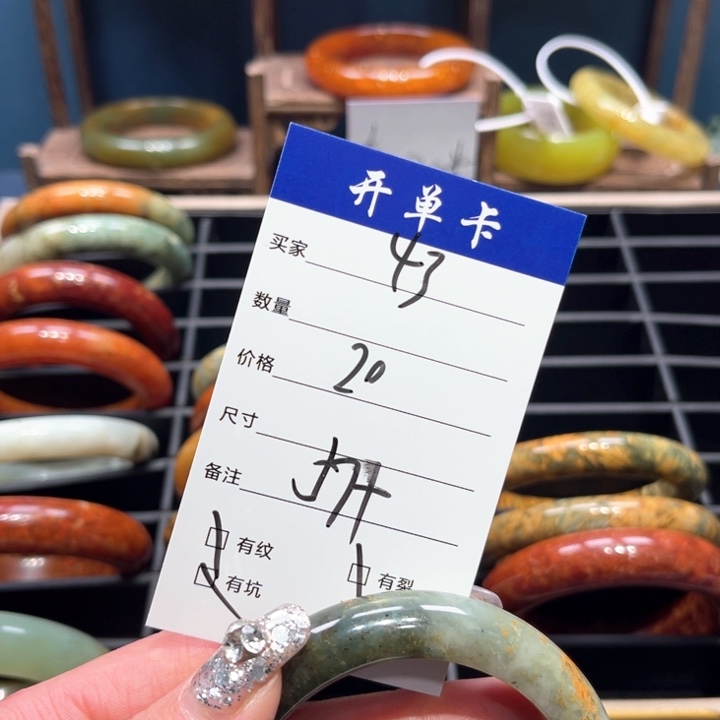 开单卡
买家 43
数量
价格 20
尺寸
备注
有纹 有裂
有坑